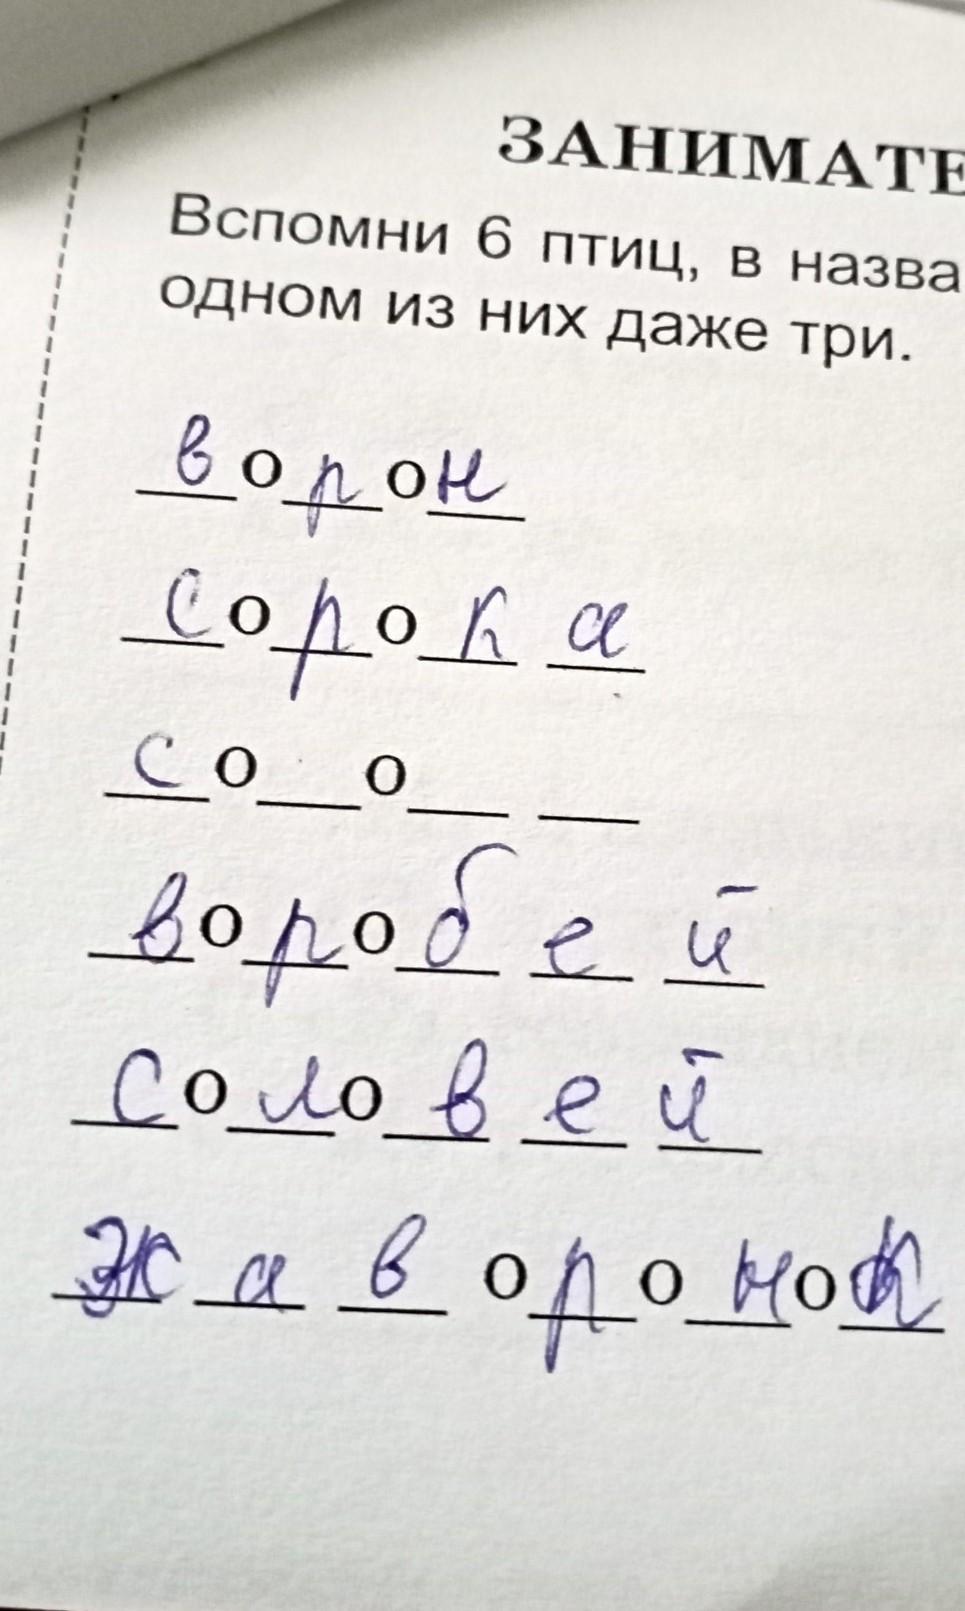 ЗАНИМАТЕ
Вспомни 6 птиц, в назва
одном из них даже три.
ворон
сорока
со_о_ _
воробей
соловей
жаворонок